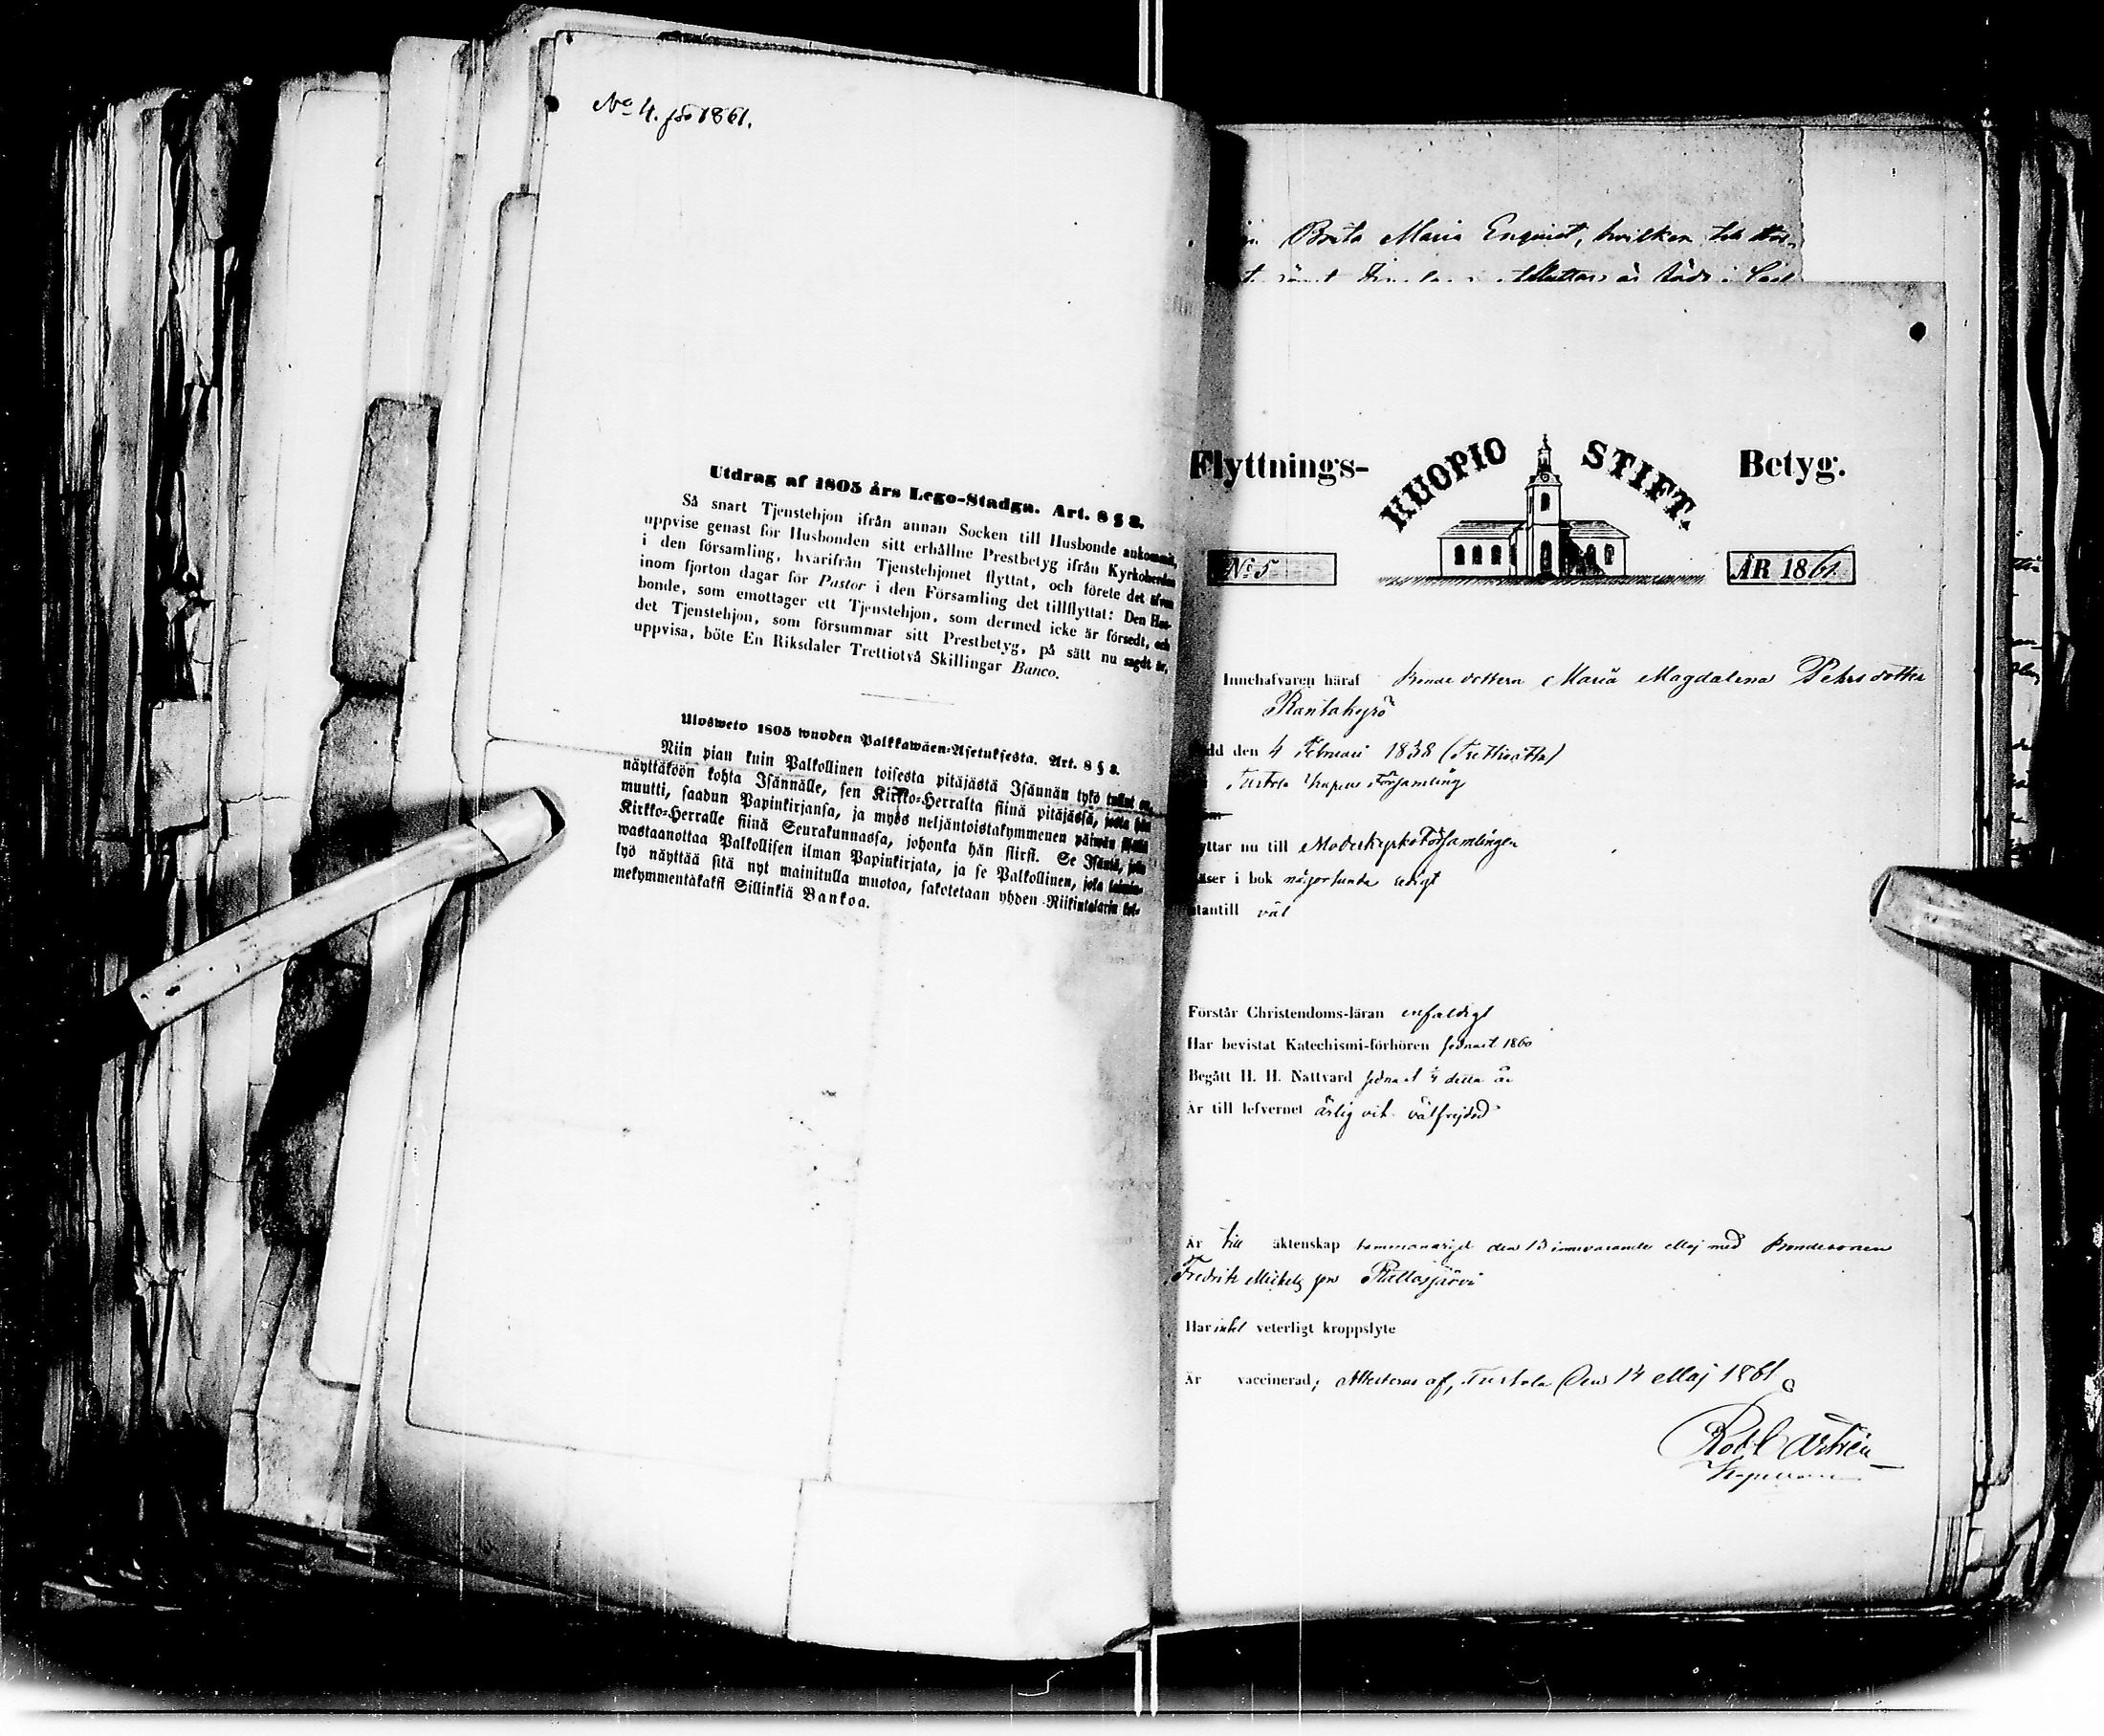 No 4. pro 1861.
Utdrag af 1805 års Lego-Stadga. Art. 8 § 8.
Så snart Tjenstehjon ifrån annan Socken till Husbonde ankommit,
uppvise genast för Husbonden sitt erhållne Prestbetyg ifrån Kyrkoherden
i den församling, hvarifrån Tjenstehjonet flyttat, och förete det äfven
inom fjorton dagar för Pastor i den Församling det tillflyttat: Den Hus-
bonde, som emottager ett Tjenstehjon, som dermed icke är försedt, och
det Tjenstehjon, som försummar sitt Prestbetyg, på sätt nu sagdt är,
uppvisa, böte En Riksdaler Trettiotvå Skillingar Banco.
Ulosweto 1805 wuoden Palkkawäen-Asetuksesta. Art. 8 § 8.
Niin pian kuin Palkollinen toisesta pitäjästä Isännän tykö tullut on,
näyttäköön kohta Isännälle, sen Kirkko-Herralta siinä pitäjässä, josta hän
muutti, saadun Papinkirjansa, ja myös neljäntoistakymmenen päiwän sisällä
Kirkko-Herralle siinä Seurakunnassa, johonka hän siirsi. Se Isäntä, joka
wastaanottaa Palkollisen ilman Papinkirjata, ja se Palkollinen, joka laimin-
lyö näyttää sitä nyt mainitulla muotoa, sakotetaan yhden Riikintalarin kol-
mekymmentäkaksi Sillinkiä Bankoa.
Brita Maria Enquist, hvilken
Flyttnings- KUOPIO STIFT. Betyg.
No 5 ÅR 1861.
Innehafvaren häraf Bondedottern Maria Magdalena Pehrsdotter
Rantakyrö
dd den 4 Februari 1838 (Trettioåtta)
Församling
yttar nu till Moderkyrko Församlingen
äser i bok någorlunda redigt
utantill väl
Förstår Christendoms-läran enfaldigt
Har bevistat Katechismi-förhören sednast 1860
Begått H. H. Nattvard sednast detta år
Är till lefvernet ärlig och välfrejdad
Är till äktenskap sammanvigd den 13 innevarande Maj med Bondesonen
Fredrik Michels son
Har intet veterligt kroppslyte
Är vaccinerad; Attesteras af, den 14 Maj 1861
Kapellan